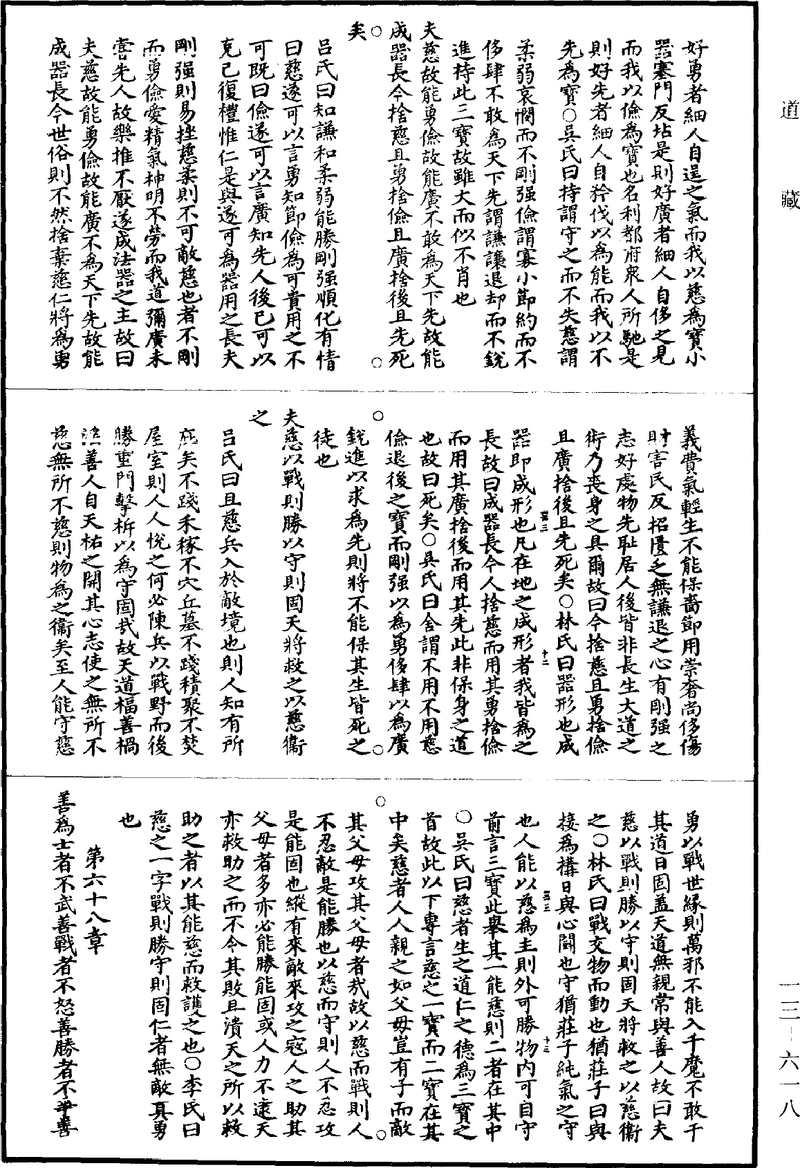 道藏
好勇者細人自逞之氣而我以慈為寶小
器塞門反坫是則好廣者細人自侈之見
而我以儉為寶也名利都府衆人所馳是
則好先者細人自矜伐以為能而我以不
先為寶○吳氏曰持謂守之而不失慈謂
柔弱哀憫而不剛强儉謂寡小節約而不
侈肆不敢為天下先謂謙讓退却而不銳
進持此三寶故雖大而似不肖也
夫慈故能勇儉故能廣不敢為天下先故能
成器長今捨慈且勇捨儉且廣捨後且先死
矣
呂氏曰知謙和柔弱能勝剛强順化有情
曰慈遂可以言勇知節儉為可貴用之不
可既曰儉遂可以言廣知先人後已可以
克己復禮惟仁是與遂可為器用之長夫
剛强則易挫慈柔則不可敵慈也者不剛
而勇儉愛精氣神明不勞而我道彌廣未
嘗先人故樂推不厭遂成法器之主故曰
夫慈故能勇儉故能廣不為天下先故能
成器長今世俗則不然捨棄慈仁將為勇
義費氣輕生不能保嗇節用崇奢尚侈傷
財害民反招隆之無謙退之心有剛强之
志好處物先耻居人後皆非長生大道之
術乃喪身之具爾故曰今捨慈且勇捨儉
且廣捨後且先死矣○林氏曰器形也成
器即成形也凡在地之成形者我皆為之
長故曰成器長今人捨慈而用其勇捨儉
而用其廣捨後而用其先此非保身之道
也故曰死矣○吳氏曰舍謂不用不用慈
儉退後之寶而剛强以為勇侈肆以為廣
銳進以求為先則將不能保其生皆死之
徒也
夫慈以戰則勝以守則固天將救之以慈衞
之
呂氏曰且慈兵入於敵境也則人知有所
庇矣不踐禾稼不穴丘墓不踐積聚不焚
屋室則人人悅之何必陳兵以戰野而後
勝重門擊柝以為守固哉故天道福善禍
淫善人自天祐之開其心志使之無所不
慈無所不慈則物為之衞矣至人能守慈
勇以戰世緣則萬邪不能入千魔不敢干
其道日固蓋天道無親常與善人故曰夫
慈以戰則勝以守則固天將救之以慈衞
之○林氏曰戰交物而動也猶莊子曰與
接為構日與心鬪也守猶莊子純氣之守
也人能以慈為主則外可勝物内可自守
前言三寶此舉其一能慈則二者在其中
○吳氏曰慈者生之道仁之德為三寶之
首故此以下專言慈之一寶而二寶在其
中矣慈者人人親之如父母豈有子而敵
其父母攻其父母者哉故以慈而戰則人
不忍敵是能勝也以慈而守則人不忍攻
是能固也縱有來敵來攻之寇人之助其
父母者多亦必能勝能固或人力不逮天
亦救助之而不令其敗且潰天之所以救
助之者以其能慈而救護之也○李氏曰
慈之一字戰則勝守則固仁者無敵真勇
也
第六十八章
善為士者不武善戰者不怒善勝者不爭善
一三-六一八